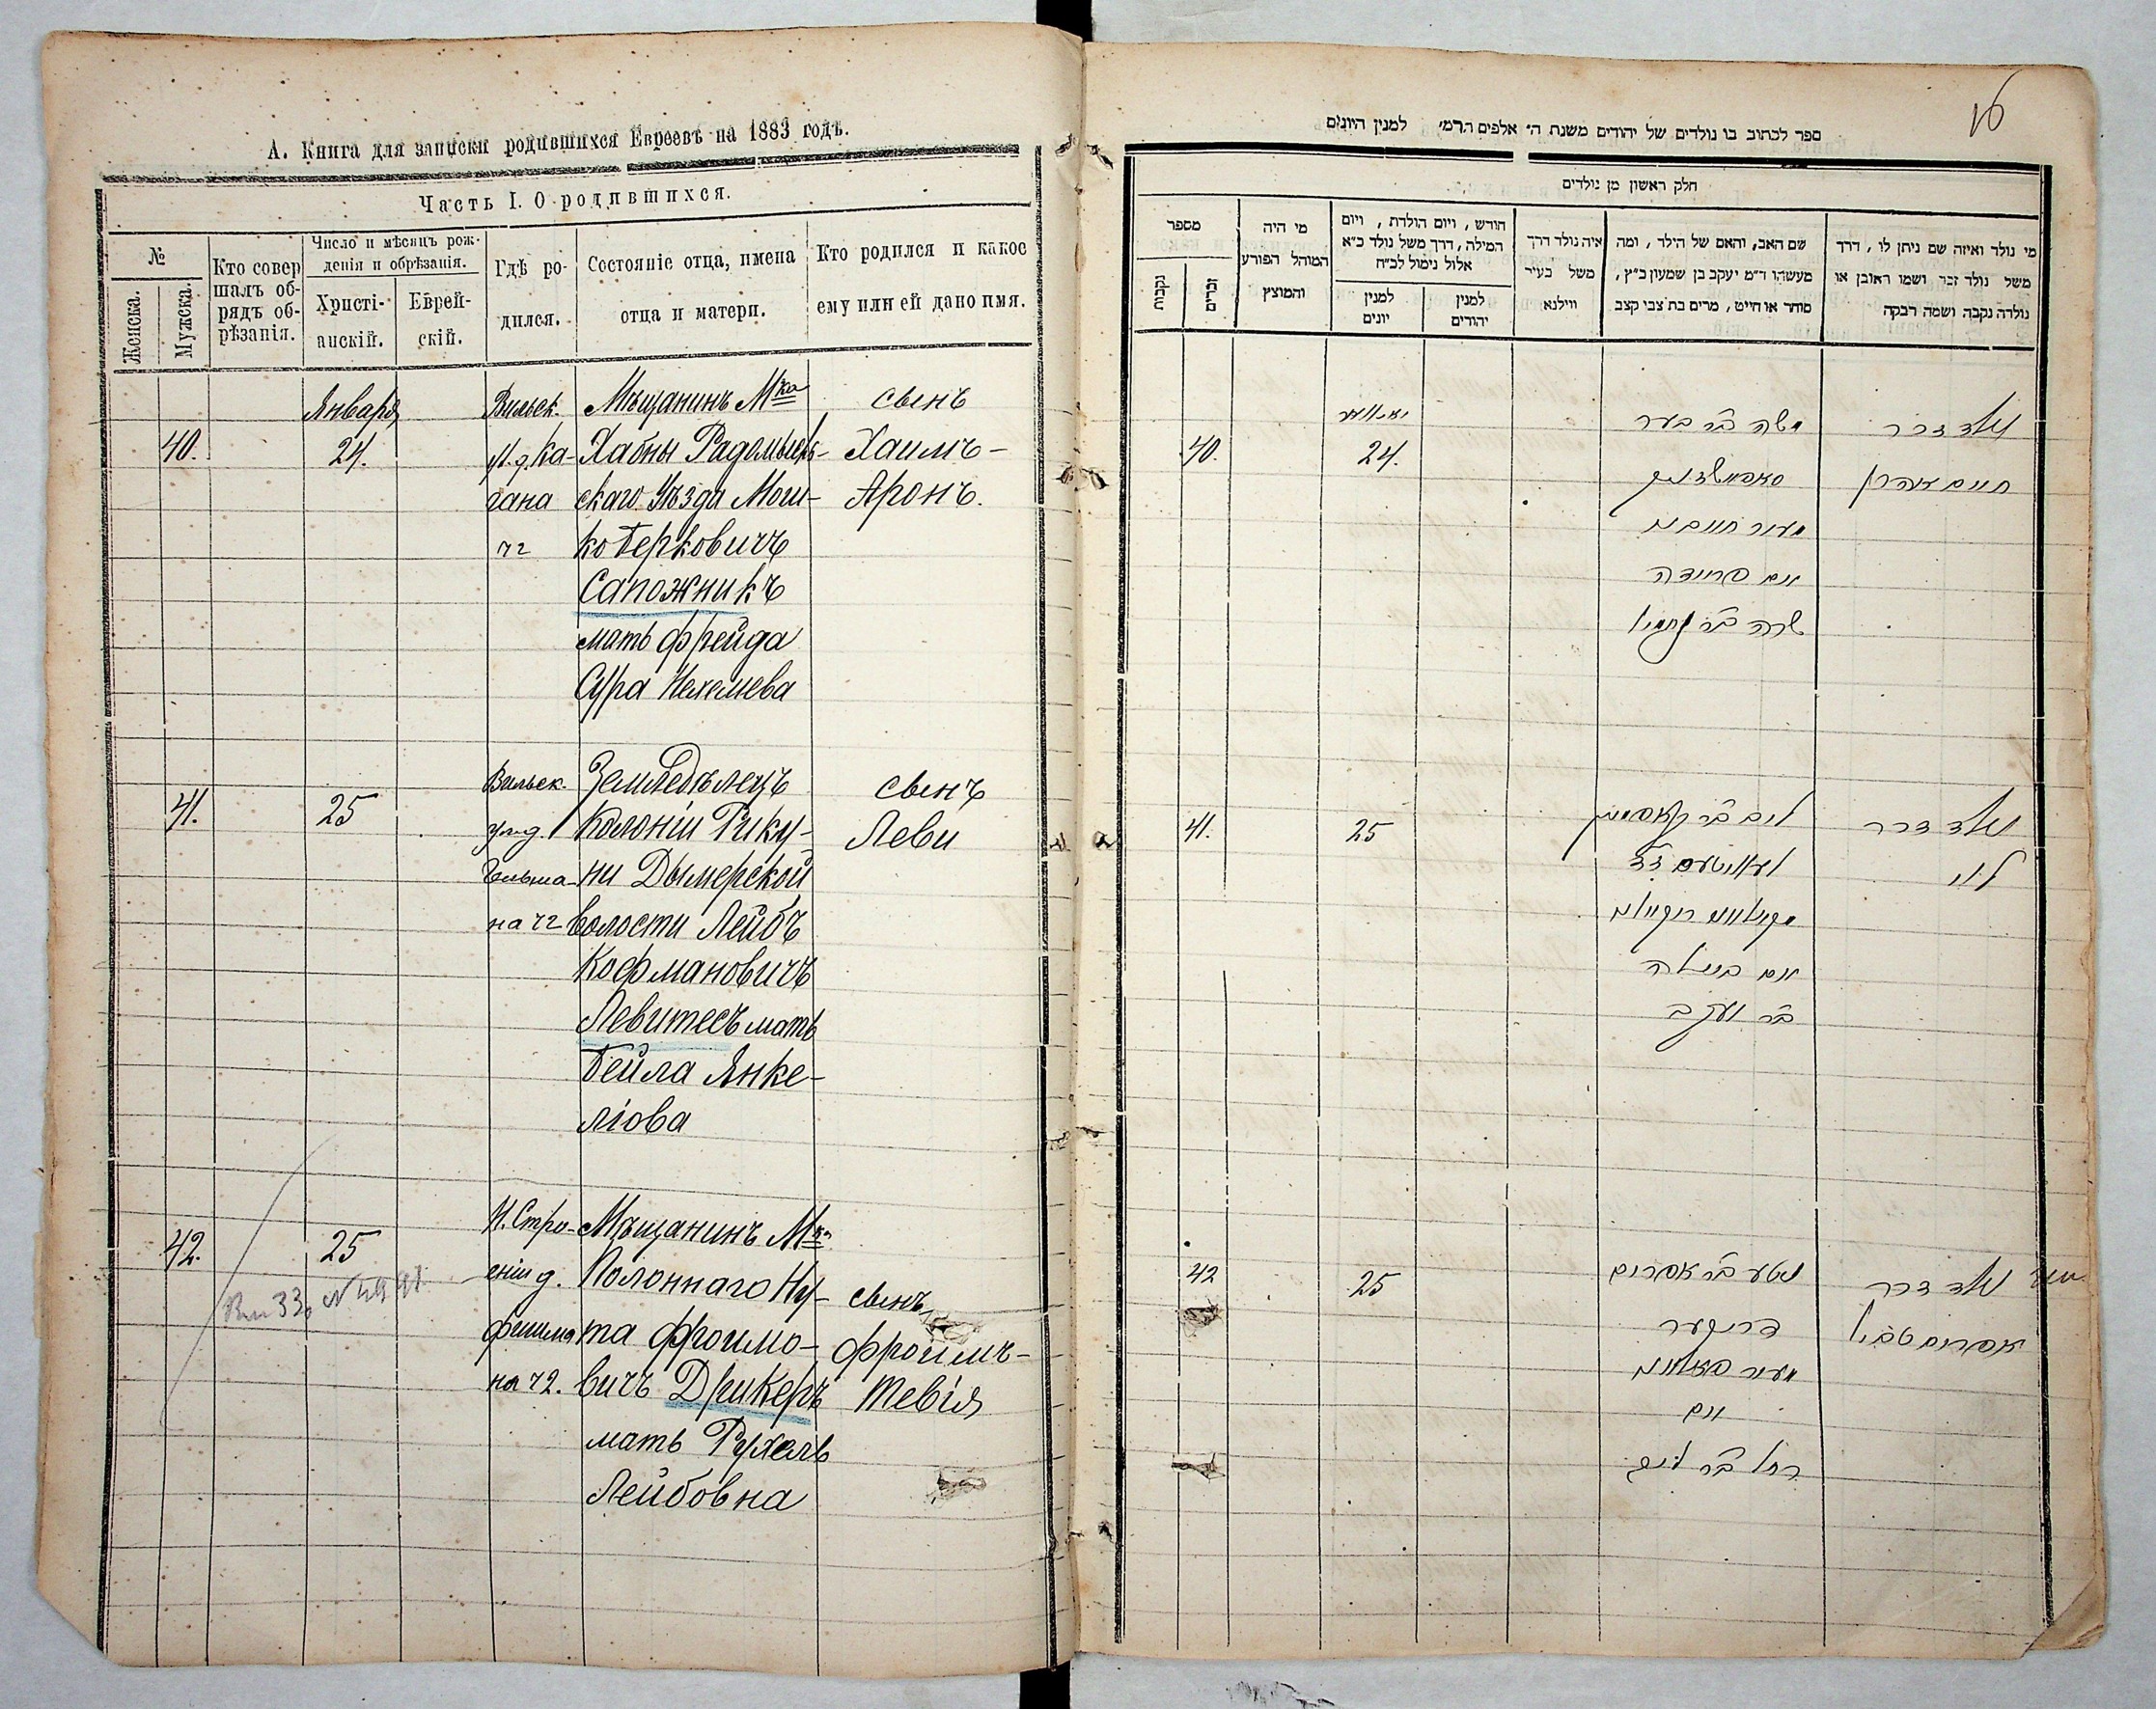 А. Книга для записки родившихся Евреевъ на 1883 годъ.
Часть I. О родившихся.
№
Женска.
Мужска.
Кто совершалъ обрядъ обрѣзанія.
Число и мѣсяцъ рожденія и обрѣзанія.
Христіанскій.
Еврейскій.
Гдѣ родился.
Состояніе отца, имена отца и матери.
Кто родился и какое ему или ей дано имя.
40.
Января
24.
Васильк.
ул. д. Ка-
гана
Мѣщанинъ Мка
Хабны Радомысль-
скаго Уѣзда Мош-
ко Берковичъ
Сапожникъ
мать Фрейда
Сура Нехемева
сынъ
Хаимъ-
Аронъ.
41.
25
Васильк.
ул. д.
Гельма-
на
Земледѣлецъ
Колоніи Рику-
ни Дымерской
волости Лейбъ
Кофмановичъ
Левитесъ мать
Бейла Янке-
ліова
сынъ
Леви
42.
25
Н. Стро-
еніи д.
Фишма
на
Мѣщанинъ Мка
Полоннаго Ну-
та Фроимо-
вичъ Дрикеръ
мать Рухель
Лейбовна
сынъ
Фроимъ-
Тевія
16
ספר לכתוב בו נולדים של יהודים משנת ה' אלפים תרמ' למנין היונים
חלק ראשון מן נולדים
מספר
נקבות
זכרים
מי היה המוהל הפורע והמוצץ
חודש, ויום הולדת, ויום
המילה, דרך משל נולד כ"א
אלול נימול לכ"ח
למנין יונים
למנין יהודים
איה נולד דרך
משל בעיר
ווילנא
שם האב, והאם של הילד, ומה
מעשהו ד"מ יעקב בן שמעון כ"ץ,
סוחר או חייט, מרים בת צבי קצב
מי נולד ואיזה שם ניתן לו, דרך
משל נולד זכר ושמו ראובן או
נולדה נקבה ושמה רבקה
40.
24.
משה ב"ר בער
סאפאזשניק
מעיר חאבנע
אם פריידה
שרה ב"ר נחמיא
נולד זכר
חיים אהרן
41.
25
ליב ב"ר קאפמאן
לעוויטעס
אם ביילה
ב"ר יעקב
נולד זכר
לוי
42
25
נטע ב"ר אפרים
דריקער
מעיר פאלאנע
אם
רחל ב"ר ליב
נולד זכר
אפרים טביל